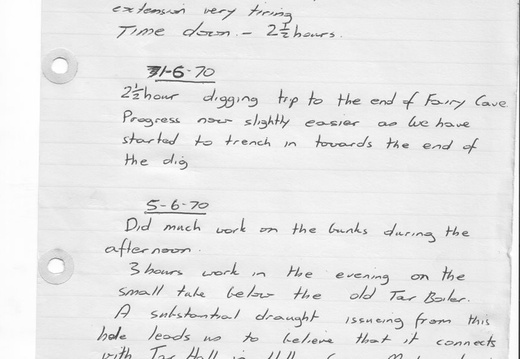 extension very tiring
Time down - 2½ hours.
1-6-70
2½ hour digging trip to the end of Fairy Cave
Progress now slightly easier as we have
started to trench in towards the end of
the dig
5-6-70
Did much work on the bunks during the
afternoon.
3 hours work in the evening on the
small tube below the old Tar Boiler.
A substantial draught issueing from this
hole leads us to believe that it connects
with Tar Hall in Hill